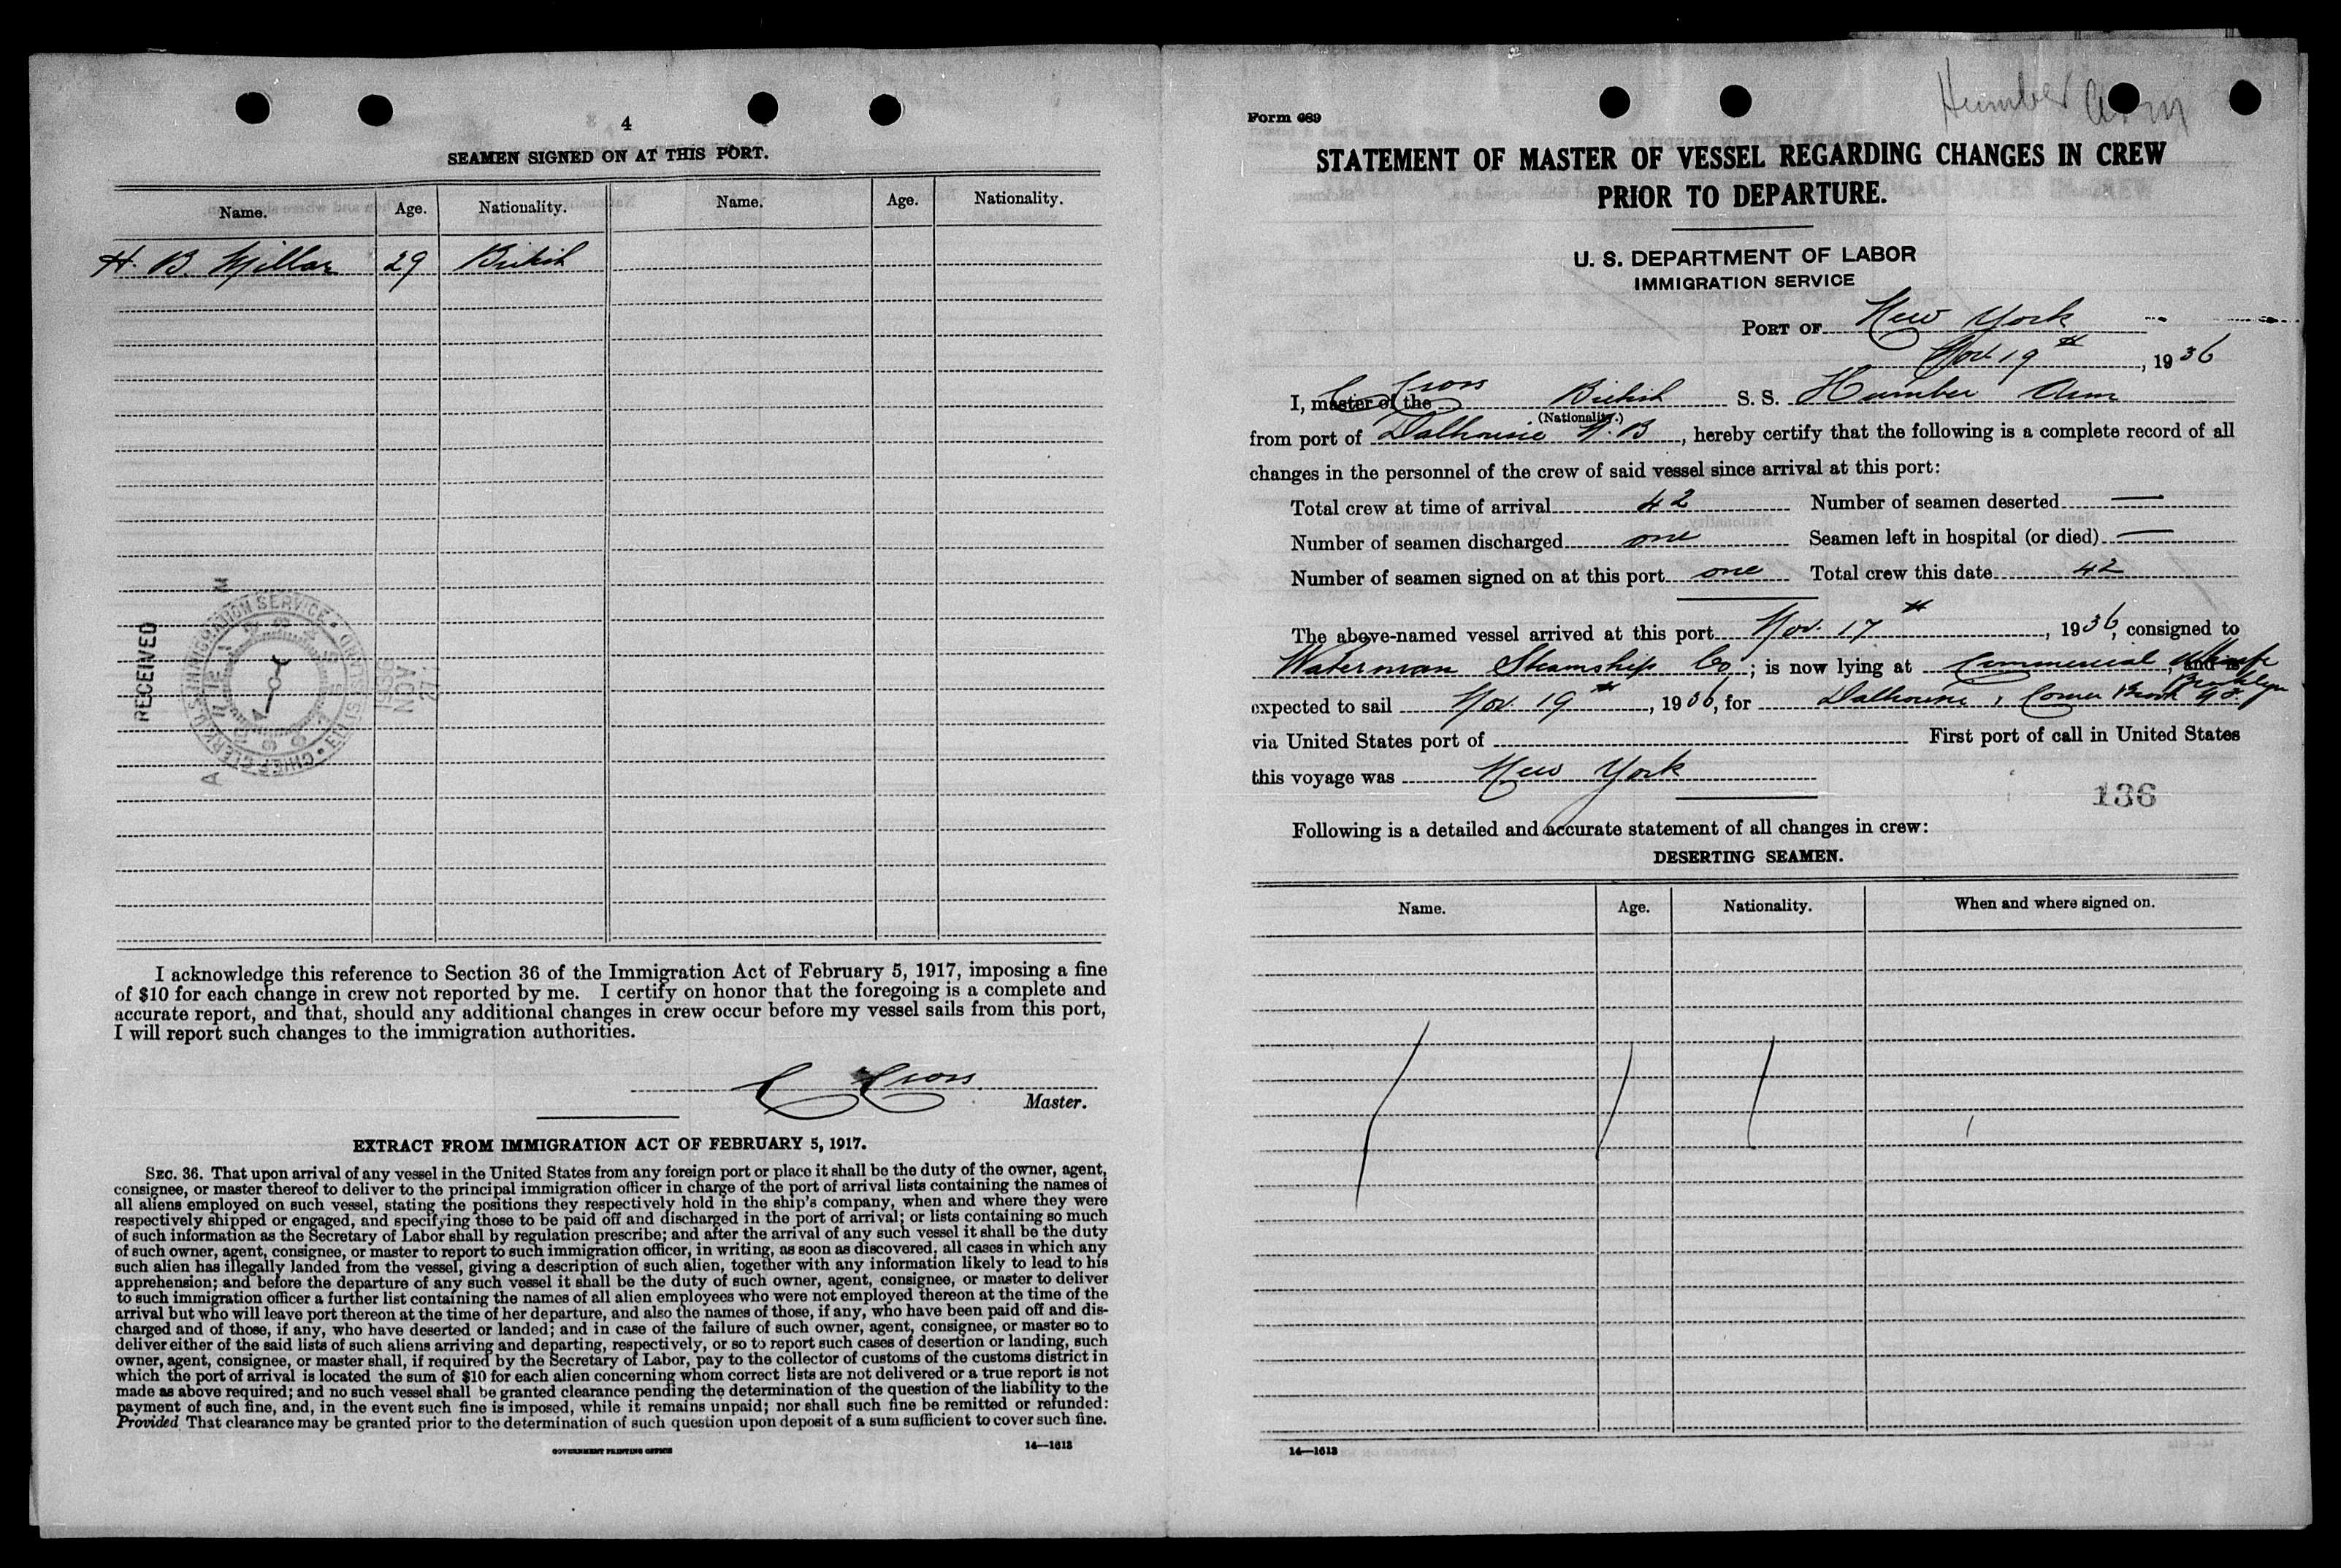 4
SEAMEN SIGNED ON AT THIS PORT.
Name. Age. Nationality. Name. Age. Nationality.
H. B. Millar 29 British
RECEIVED
U.S. IMMIGRATION SERVICE
CHIEF CLERK
NOV
I acknowledge this reference to Section 36 of the Immigration Act of February 5, 1917, imposing a fine
of $10 for each change in crew not reported by me. I certify on honor that the foregoing is a complete and
accurate report, and that, should any additional changes in crew occur before my vessel sails from this port,
I will report such changes to the immigration authorities.
C Cross
Master.
EXTRACT FROM IMMIGRATION ACT OF FEBRUARY 5, 1917.
SEC. 36. That upon arrival of any vessel in the United States from any foreign port or place it shall be the duty of the owner, agent,
consignee, or master thereof to deliver to the principal immigration officer in charge of the port of arrival lists containing the names of
all aliens employed on such vessel, stating the positions they respectively hold in the ship's company, when and where they were
respectively shipped or engaged, and specifying those to be paid off and discharged in the port of arrival; or lists containing so much
of such information as the Secretary of Labor shall by regulation prescribe; and after the arrival of any such vessel it shall be the duty
of such owner, agent, consignee, or master to report to such immigration officer, in writing, as soon as discovered, all cases in which any
such alien has illegally landed from the vessel, giving a description of such alien, together with any information likely to lead to his
apprehension; and before the departure of any such vessel it shall be the duty of such owner, agent, consignee, or master to deliver
to such immigration officer a further list containing the names of all alien employees who were not employed thereon at the time of the
arrival but who will leave port thereon at the time of her departure, and also the names of those, if any, who have been paid off and dis-
charged and of those, if any, who have deserted or landed; and in case of the failure of such owner, agent, consignee, or master so to
deliver either of the said lists of such aliens arriving and departing, respectively, or so to report such cases of desertion or landing, such
owner, agent, consignee, or master shall, if required by the Secretary of Labor, pay to the collector of customs of the customs district in
which the port of arrival is located the sum of $10 for each alien concerning whom correct lists are not delivered or a true report is not
made as above required; and no such vessel shall be granted clearance pending the determination of the question of the liability to the
payment of such fine, and, in the event such fine is imposed, while it remains unpaid; nor shall such fine be remitted or refunded:
Provided That clearance may be granted prior to the determination of such question upon deposit of a sum sufficient to cover such fine.
GOVERNMENT PRINTING OFFICE 14—1613
Humber Arm
Form 689
STATEMENT OF MASTER OF VESSEL REGARDING CHANGES IN CREW
PRIOR TO DEPARTURE.
U. S. DEPARTMENT OF LABOR
IMMIGRATION SERVICE
PORT OF New York
Nov 19th, 1936
I, C Cross master of the British S. S. Humber Arm
(Nationality.)
from port of Dalhousie N. B, hereby certify that the following is a complete record of all
changes in the personnel of the crew of said vessel since arrival at this port:
Total crew at time of arrival 42 Number of seamen deserted —
Number of seamen discharged one Seamen left in hospital (or died) —
Number of seamen signed on at this port one Total crew this date 42
The above-named vessel arrived at this port Nov. 17th, 1936, consigned to
Waterman Steamship Co; is now lying at Commercial Wharfe Brooklyn, and is
expected to sail Nov. 19th, 1936, for Dalhousie, Corner Brook
via United States port of First port of call in United States
this voyage was New York
136
Following is a detailed and accurate statement of all changes in crew:
DESERTING SEAMEN.
Name. Age. Nationality. When and where signed on.
14—1613